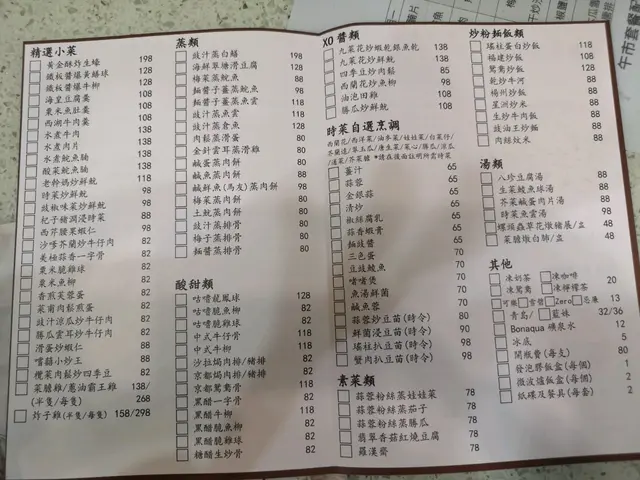 精選小菜
黃金酥炸生蠔 198
鐵板醬爆黃鱔球 128
鐵板醬爆牛柳 128
海皇豆腐羹 108
粟米魚肚羹 108
西湖牛肉羹 108
水煮牛肉 138
水煮肉片 138
水煮鯇魚腩 138
酸菜鯇魚腩 138
老幹媽炒鮮魷 118
時菜炒鮮魷 98
豉椒味菜炒鮮魷 98
杞子豬潤浸時菜 88
西芹腰果蝦仁 98
沙嗲芥蘭炒牛仔肉 82
美極蒜香一字骨 82
粟米脆雞球 82
粟米魚柳 82
香煎芙蓉蛋 82
菜甫肉鬆煎蛋 82
豉汁涼瓜炒牛仔肉 82
勝瓜雲耳炒牛仔肉 82
滑蛋炒蝦仁 88
嚐囍小炒王 88
欖菜肉鬆炒四季豆 82
菜膽雞/蔥油霸王雞 138/
(半隻/每隻) 268
炸子雞(半隻/每隻) 158/298
蒸類
豉汁蒸白鱔 198
海鮮草糖滑豆腐 128
梅菜蒸鯇魚 88
麵醬子薑蒸鯇魚 98
麵醬子薑蒸魚雲 118
豉汁蒸魚雲 118
豉汁蒸倉魚 128
肉鬆蒸滑蛋 80
金針雲耳蒸滑雞 80
鹹蛋蒸肉餅 80
鹹魚蒸肉餅 80
鹹鮮魚(馬友)蒸肉餅 98
梅菜蒸肉餅 80
土魷蒸肉餅 80
豉汁蒸排骨 80
梅子蒸排骨 80
麵醬蒸排骨 80
酸甜類
咕嚕龍鳳球 128
咕嚕脆魚柳 82
咕嚕脆雞球 82
中式牛仔骨 118
中式牛柳 118
沙拉焗肉排/豬排 82
京都焗肉排/豬排 82
京都鴛鴦骨 118
黑醋一字骨 82
黑醋牛柳 118
黑醋脆魚柳 82
黑醋脆雞球 82
糖醋生炒骨 82
XO 醬類
九菜花炒蝦乾銀魚乾 138
九菜花炒鮮魷 138
四季豆炒肉鬆 85
西蘭花炒魚柳 98
油泡田雞 108
勝瓜炒鮮魷 108
時菜自選烹調
薑汁 65
蒜蓉 65
金銀蒜 65
清炒 65
椒絲腐乳 65
蒜香蝦膏 65
麵豉醬 65
三色蛋 70
豆豉鯪魚 70
啫啫煲 70
魚湯鮮菌 70
鹹魚蓉 70
蒜蓉炒豆苗(時令) 80
鮮菌浸豆苗(時令) 90
瑤柱扒豆苗(時令) 98
蟹肉扒豆苗(時令) 98
素菜類
蒜蓉粉絲蒸娃娃菜 78
蒜蓉粉絲蒸茄子 78
蒜蓉粉絲蒸勝瓜 78
翡翠香菇紅燒豆腐 78
羅漢齋 78
炒粉麵飯類
瑤柱蛋白炒飯 118
福建炒飯 108
鴛鴦炒飯 128
乾炒牛河 88
楊州炒飯 88
星洲炒米 88
生炒牛肉飯 88
豉油王炒麵 88
肉絲炆米 88
湯類
八珍豆腐湯 88
生菜鯪魚球湯 88
芥菜鹹蛋肉片湯 88
時菜魚雲湯 98
螺頭蟲草花燉豬展/盅 48
菜膽燉白肺/盅 48
其他
凍奶茶 凍咖啡 20
凍鴛鴦 凍檸檬茶
可樂 雪碧 Zero 忌廉 13
青島/ 藍妹 32/36
Bonaqua 礦泉水 12
冰底 5
開瓶費(每支) 80
發泡膠飯盒(每個) 1
微波爐飯盒(每個) 2
紙碟及餐具(每套) 2
午市套餐配